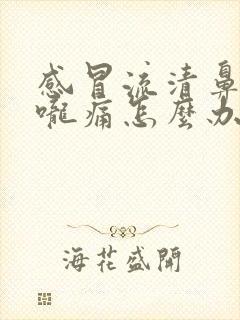 感冒流清鼻
嚨痛怎麼办
海花盛開